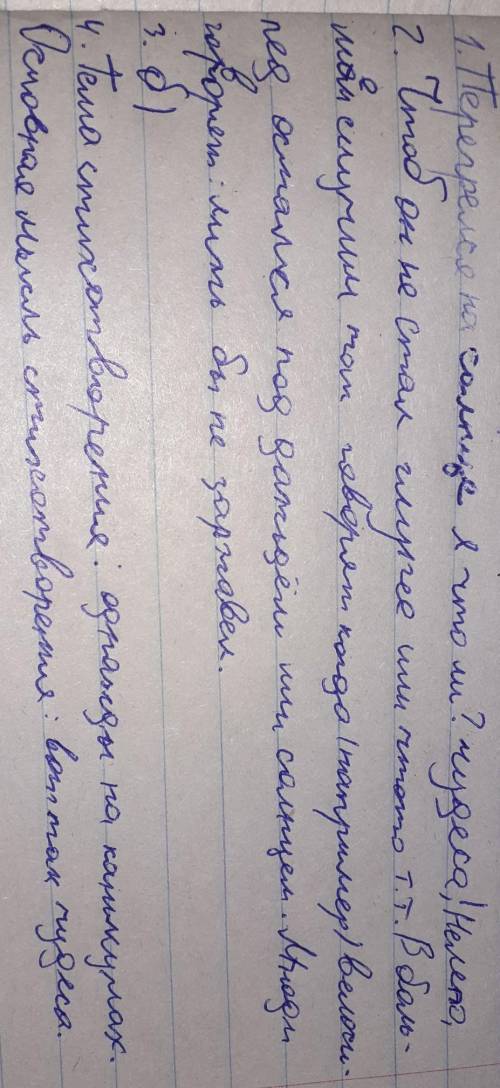 1. Перегрелся на солнце я что ли? чудеса! Нелепо,
2. Чтоб он не стал глупее или чтото т.т. В боль-
моё случаи так говорят когда (например) велоси-
пед остался под дождём или солнцем. Люди
говорят: лишь бы не заржавел.
3. б)
4. Тема стихотворения: однажды на каникулах.
Основная мысль стихотворения: вот так чудеса.